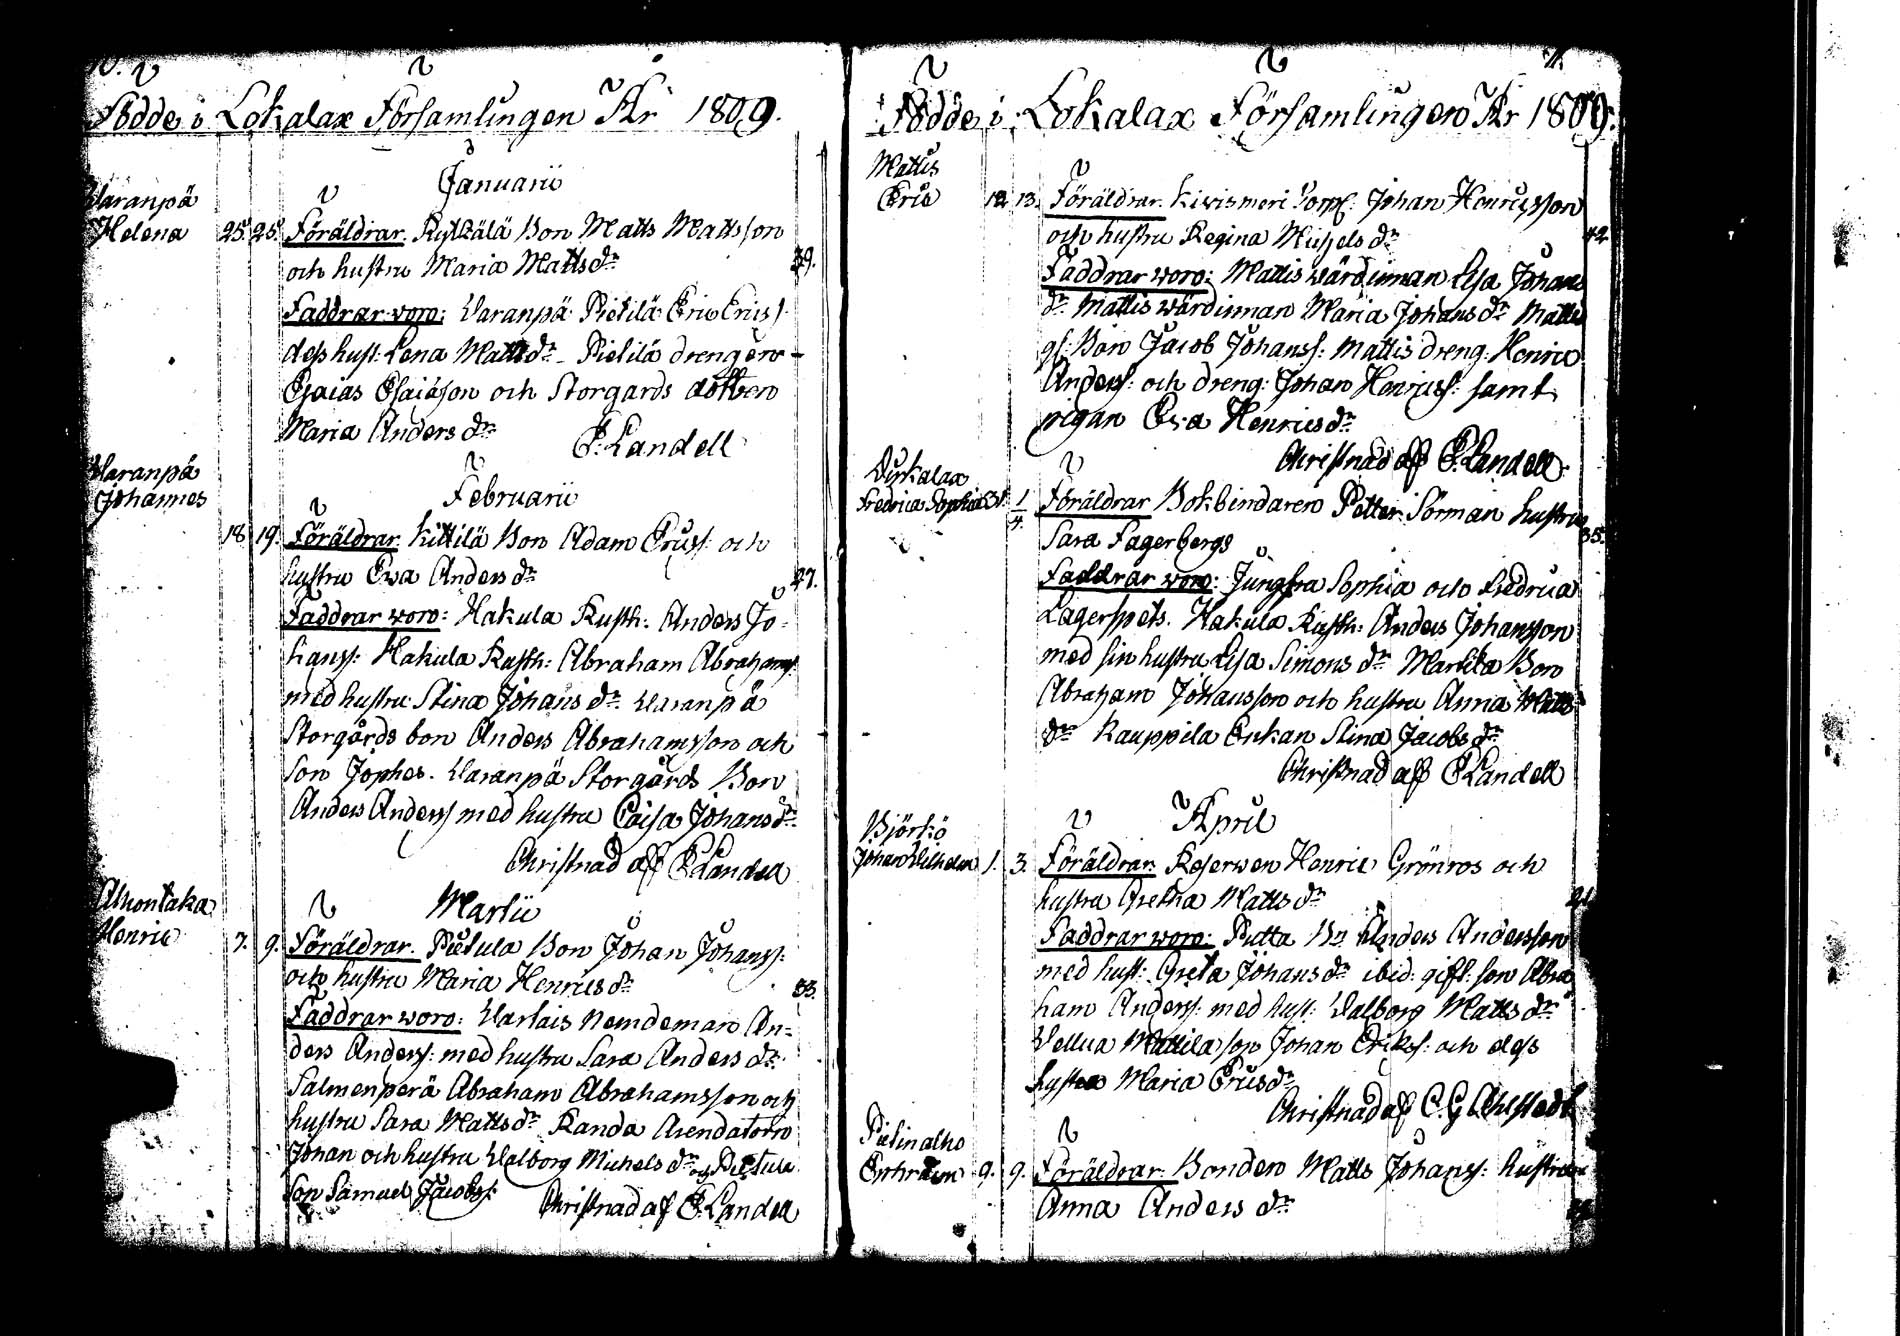 10.
Födde i Lokalax Församlingen År 1809.
Januarii
Varanpä
Helena 25. 25. Föräldrar. Rytkälä Bon Matts Mattsson
och hustru Maria Mattsdr 39.
Faddrar woro: Varanpä Pietilä Eric Ericss.
dess hust: Lena Mattsdr Pietilä drengen
Esaias Esaiason och Storgards dotteren
Maria Andersdr
E. Landell
Februarii
Varanpä
Johannes
18 19. Föräldrar. Kittilä Bon Adam Ericss: och
hustru Ewa Andersdr 27.
Faddrar woro: Hakula Rusth: Anders Jo-
hanss: Hakula Rusth: Abraham Abrahamss
med hustru Stina Johansdr Varanpä
Storgårds bon Anders Abrahamsson och
son Jophes. Varanpä Storgårds Bon
Anders Anderss med hustru Caisa Johansdr
Christnad aff E. Landell
Martii
Ahontaka
Henric 7. 9. Föräldrar. Pietula Bon Johan Johanss:
och hustru Maria Henricsdr 33.
Faddrar woro: Varlais Nemdeman An-
ders Anderss: med hustru Sara Andersdr
Salmenperä Abraham Abrahamsson och
hustru Sara Mattsdr Randa Arendatorn
Johan och hustru Valborg Michelsdr och Pietula
Son Samuel Jacobss: Christnad af E. Landell
11.
Födde i Lokalax Församlingen År 1809.
Mattis
Eric 12 13. Föräldrar. Kivismeri Torp: Johan Henricsson
och hustru Regina Michelsdr 42
Faddrar woro: Mattis wärdinnan Lisa Johans
dr Mattis wärdinnan Maria Johansdr Mattis
gl: Bon Jacob Johanss: Mattis dreng: Henric
Anderss: och dreng: Johan Henricss: samt
pigan Eva Henricsdr
Christnad aff E. Landell
Dyrkalax
Fredrica Sophia 31. 1/4. Föräldrar Bokbindaren Petter Sörman hustru
Sara Fagerbergs 35.
Faddrar woro: Jungfra Sophia och Fredrica
Lagerspets. Hakula Rusth: Anders Johansson
med sin hustru Lisa Simonsdr Markka Bon
Abraham Johansson och hustru Anna Matts
dr Kauppila Enkan Stina Jacobsdr
Christnad aff E. Landell
April
Björkö
Johan Vilhelm 1. 3. Föräldrar. Reserwen Henric Grönros och
hustru Gretha Mattsdr 21
Faddrar woro: Putta Bn Anders Andersson
med hust: Greta Johansdr ibid: gift: son Abra
ham Anderss: med hust: Valborg Mattsdr
Vellua Mattila son Johan Erikss: och dess
hustru Maria Ericsdr
Christnad aff C. G. Ahlstedt
Pietinalho
Enhraim 9. 9. Föräldrar: Bonden Matts Johanss: hustru
Anna Andersdr